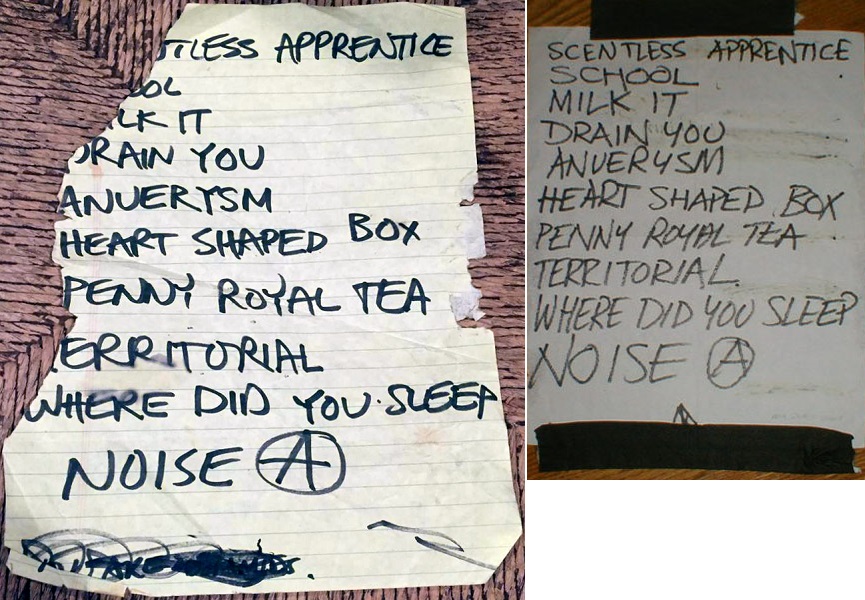 TLESS APPRENTICE
OOL
LK IT
DRAIN YOU
ANUERYSM
HEART SHAPED BOX
PENNY ROYAL TEA
ERRITORIAL
WHERE DID YOU SLEEP
NOISE Ⓐ
SCENTLESS APPRENTICE
SCHOOL
MILK IT
DRAIN YOU
ANUERYSM
HEART SHAPED BOX
PENNY ROYAL TEA
TERRITORIAL.
WHERE DID YOU SLEEP
NOISE Ⓐ